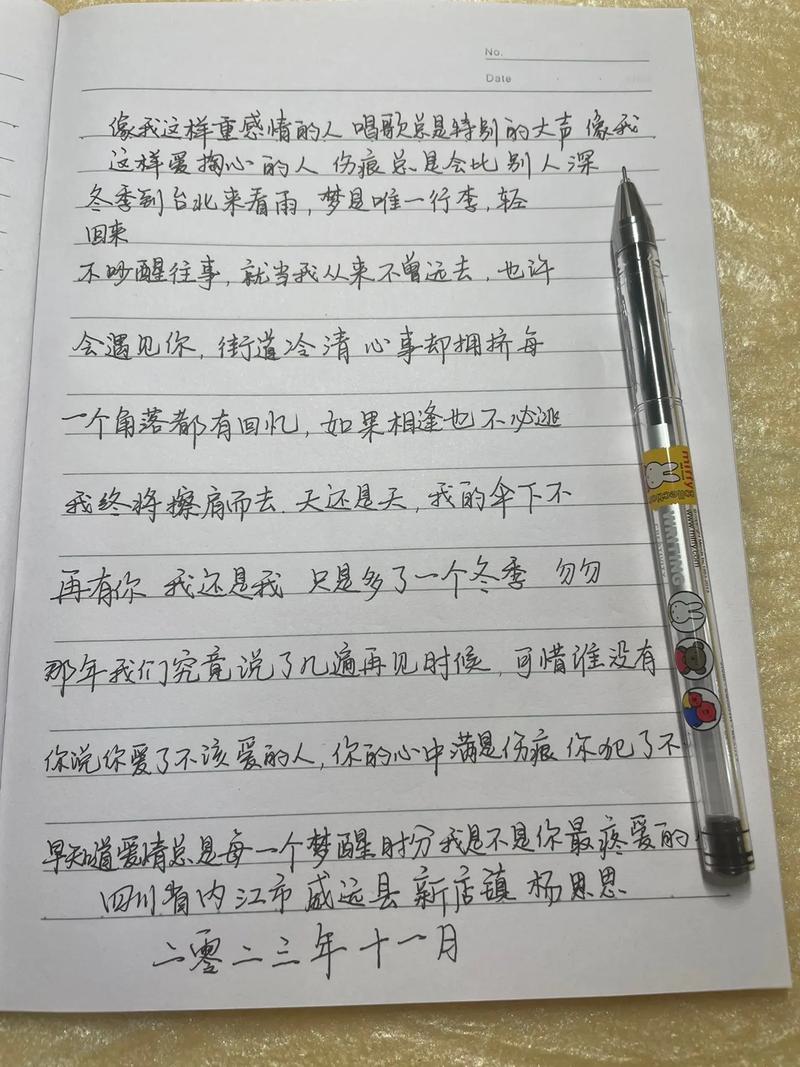 No.
Date
像我这样重感情的人 唱歌总是特别的大声 像我
这样爱掏心的人 伤痕总是会比别人深
冬季到台北来看雨，梦是唯一行李，轻
回来
不吵醒往事，就当我从来不曾远去，也许
会遇见你，街道冷清 心事却拥挤每
一个角落都有回忆，如果相逢也不必逃
我终将擦肩而去．天还是天，我的伞下不
再有你 我还是我 只是多了一个冬季 勿勿
那年我们究竟说了几遍再见时候，可惜谁没有
你说你爱了不该爱的人，你的心中满是伤痕 你犯了不
早知道爱情总是每一个梦醒时分 我是不是你最疼爱的
四川省内江市威远县新店镇 杨思思
二零二三年十一月
miffy
WRITING